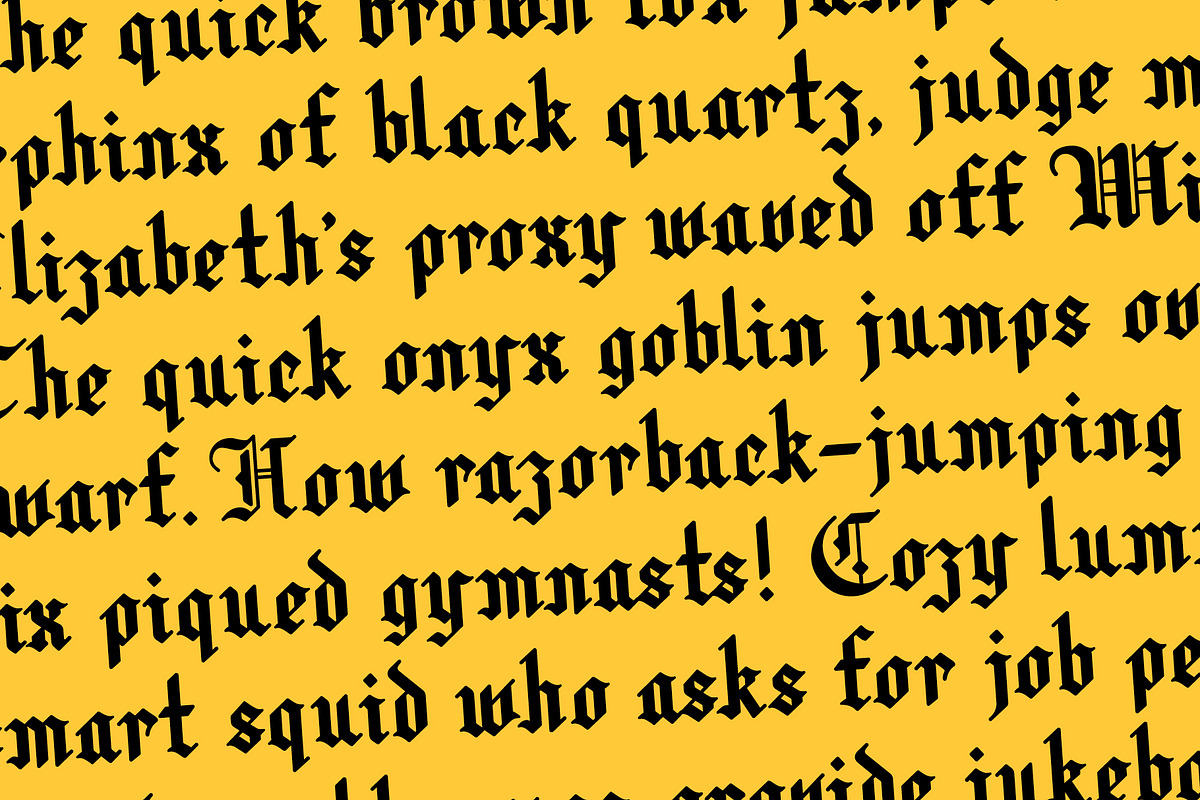 he quick brown fox jumps
phinx of black quartz, judge m
lizabeth's proxy waved off Wi
The quick onyx goblin jumps ov
warf. How razorback-jumping
ix piqued gymnasts! Cozy lum
mart squid who asks for job pe
provide jukebo